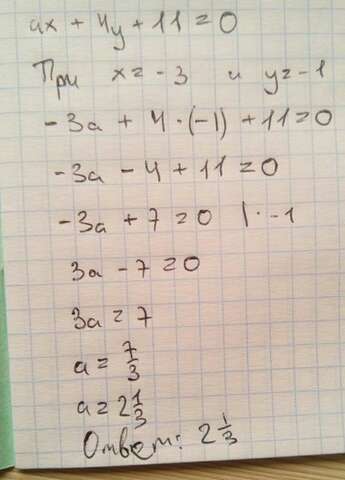 ax + 4y + 11 = 0
При x = -3 и y = -1
-3a + 4 · (-1) + 11 = 0
-3a - 4 + 11 = 0
-3a + 7 = 0 | · -1
3a - 7 = 0
3a = 7
a = 7/3
a = 2 1/3
Ответ: 2 1/3